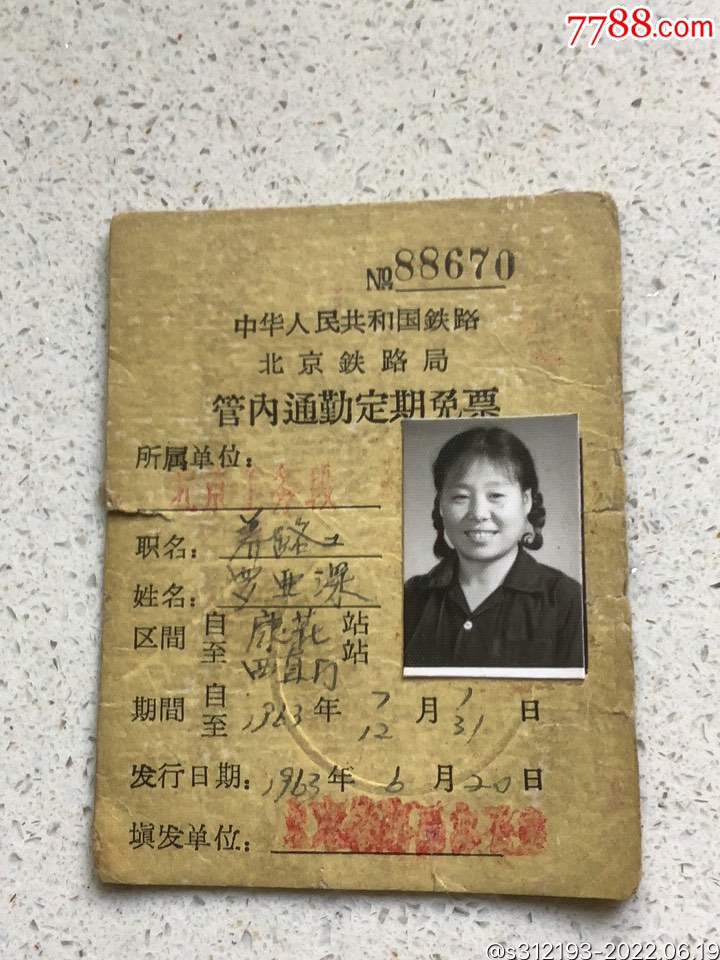 7788.com
№ 88670
中华人民共和国鉄路
北京鉄路局
管内通勤定期免票
所属单位：
北京工务段
职名：养路工
姓名：罗亚深
区間 自 康莊 站
至 西直门 站
期間 自 1963年 7月 1日
至 12 31
发行日期：1963年 6月 20日
填发单位：
@s312193-2022.06.19